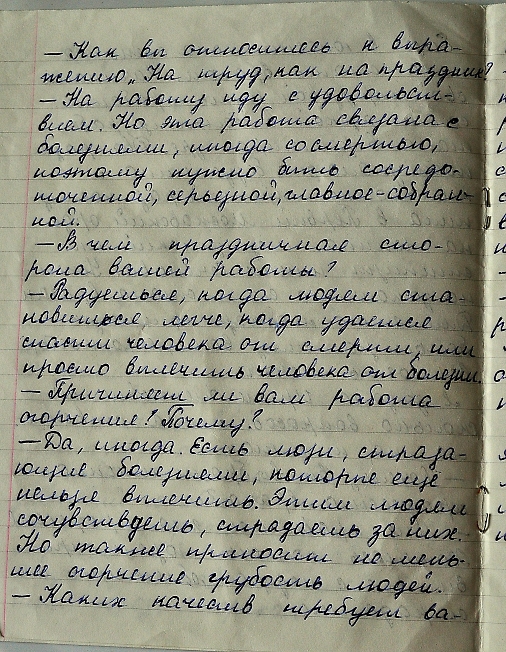 — Как вы относитесь к выра-
жению „На труд, как на праздник?
— На работу иду с удовольст-
вием. Но эта работа связана с
болезнями, иногда со смертью,
поэтому нужно быть сосредо-
точенной, серьезной, главное - собран-
ной.
— В чем праздничная сто-
рона вашей работы?
— Радуешься, когда людям ста-
новиться легче, когда удается
спасти человека от смерти, или
просто вылечить человека от болезни.
— Причиняет ли вам работа
огорчения? Почему?
— Да, иногда. Есть люди, страда-
ющие болезнями, которые еще
нельзя вылечить. Этим людям
сочувствуешь, страдаешь за них.
Но также приносит не мень-
шее огорчение грубость людей.
— Каких качеств требует ва-